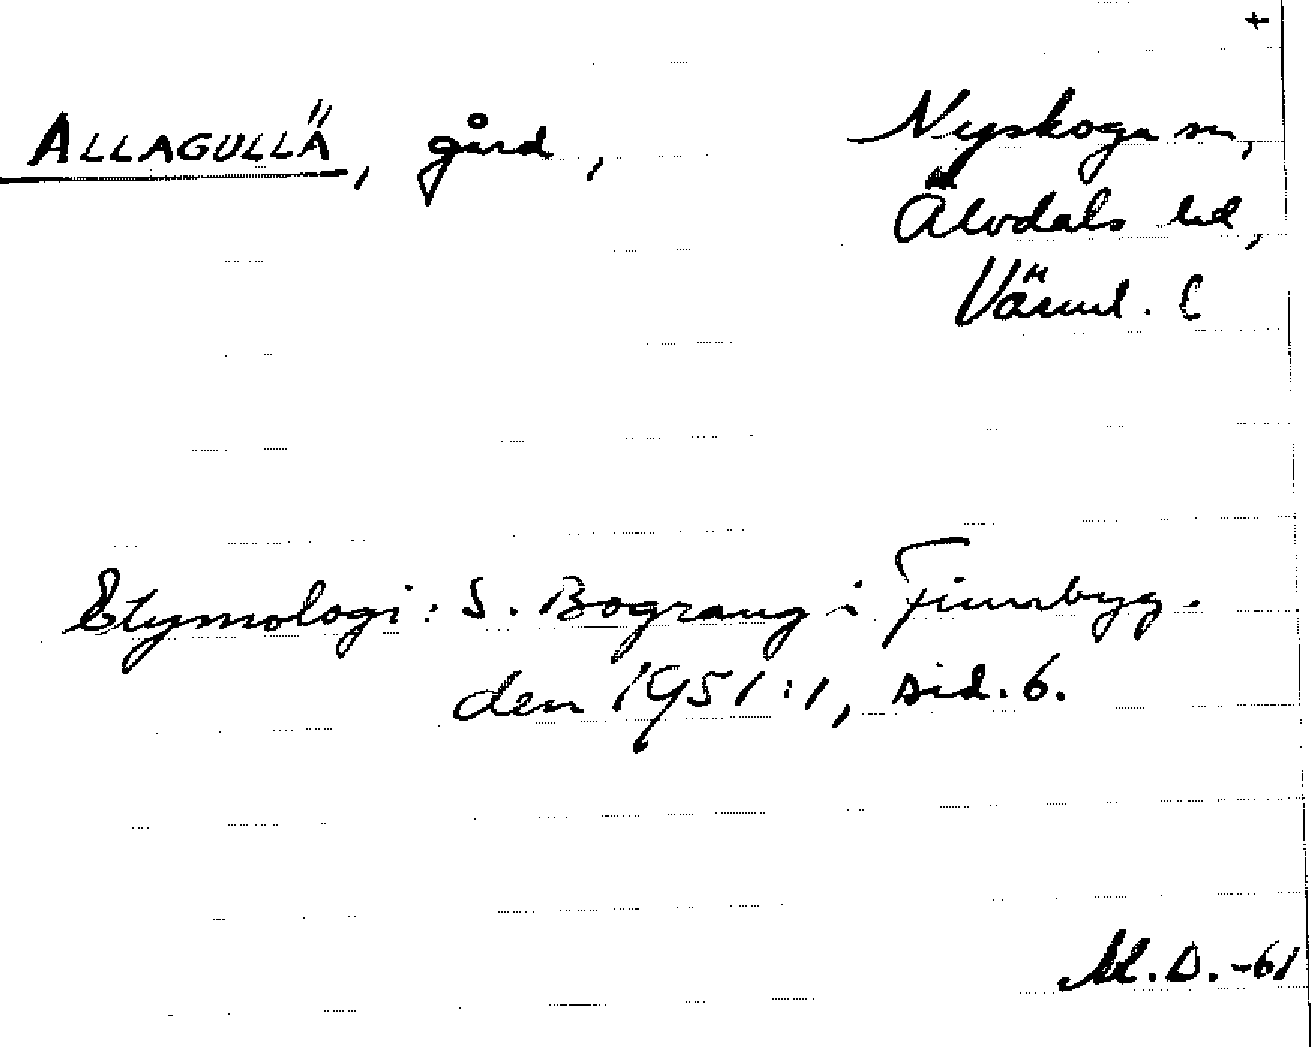 +
ALLAGULLÄ, gård, Nyskoga sn,
Älvdals hd,
Värml. l
Etymologi: S. Bograng i Finnbyg-
den 1951:1, sid. 6.
M.D. -61